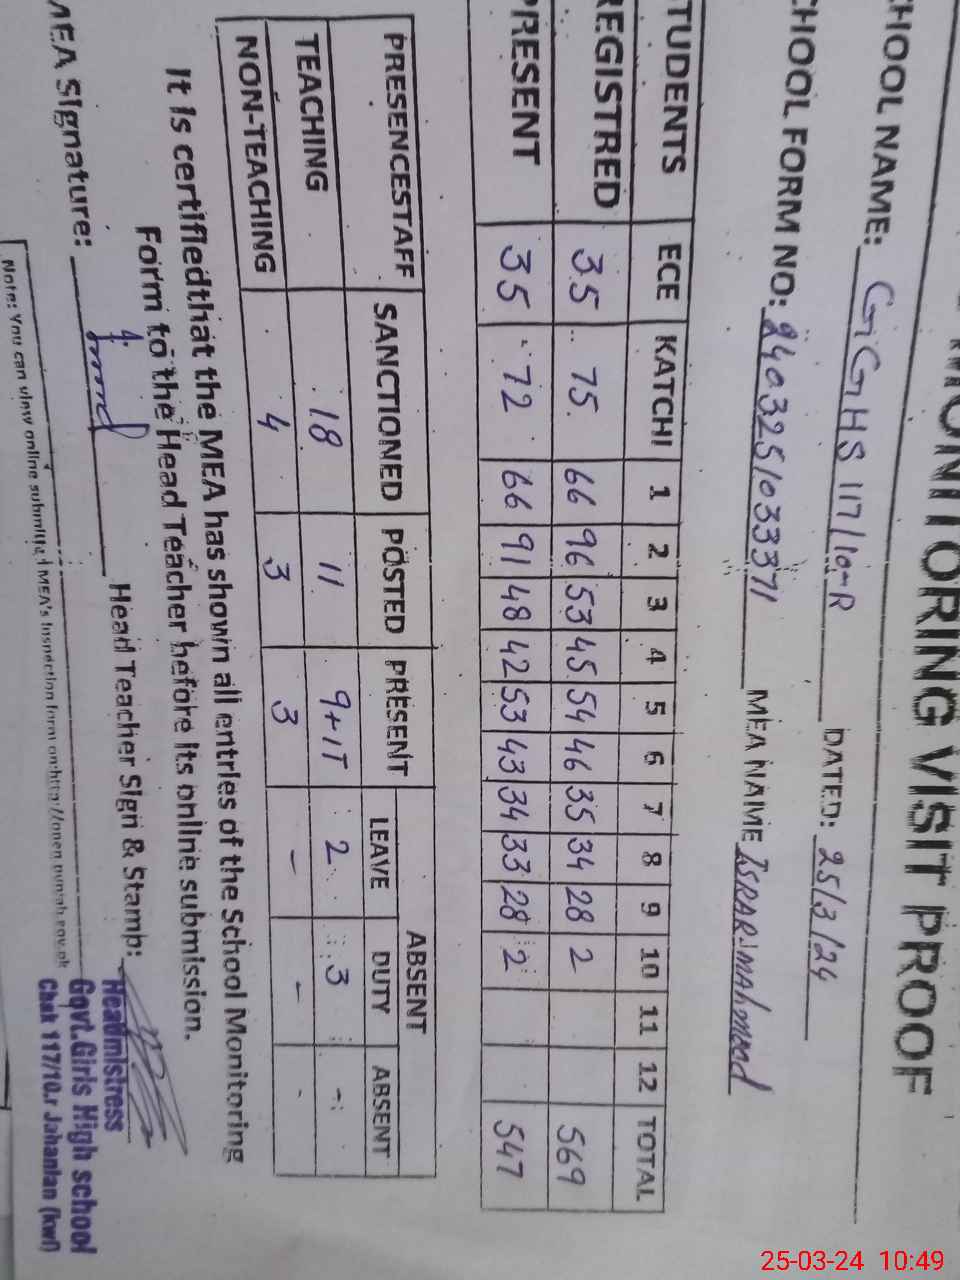 MONITORING VISIT PROOF
CHOOL NAME: GGHS 117/10-R DATED: 25/3/24
CHOOL FORM NO: 240325/033371 MEA NAME ISRAR MAhmood
TUDENTS ECE KATCHI 1 2 3 4 5 6 7 8 9 10 11 12 TOTAL
REGISTRED 35 75 66 96 53 45 54 46 35 34 28 2 569
PRESENT 35 72 66 91 48 42 53 43 34 33 28 2 547
PRESENCESTAFF SANCTIONED POSTED PRESENT ABSENT
LEAVE DUTY ABSENT
TEACHING 18 11 9+1T 2 3 -
NON-TEACHING 4 3 3 - - -
It is certifiedthat the MEA has shown all entries of the School Monitoring
Form to the Head Teacher before its online submission.
MEA Signature: Head Teacher Sign & Stamp:
Headmistress
Govt.Girls High school
Chak 117/10.r Jahanian (kwl)
Note: You can view online submitted MEA's Inspection form on:http://open.punjab.gov.pk
25-03-24 10:49